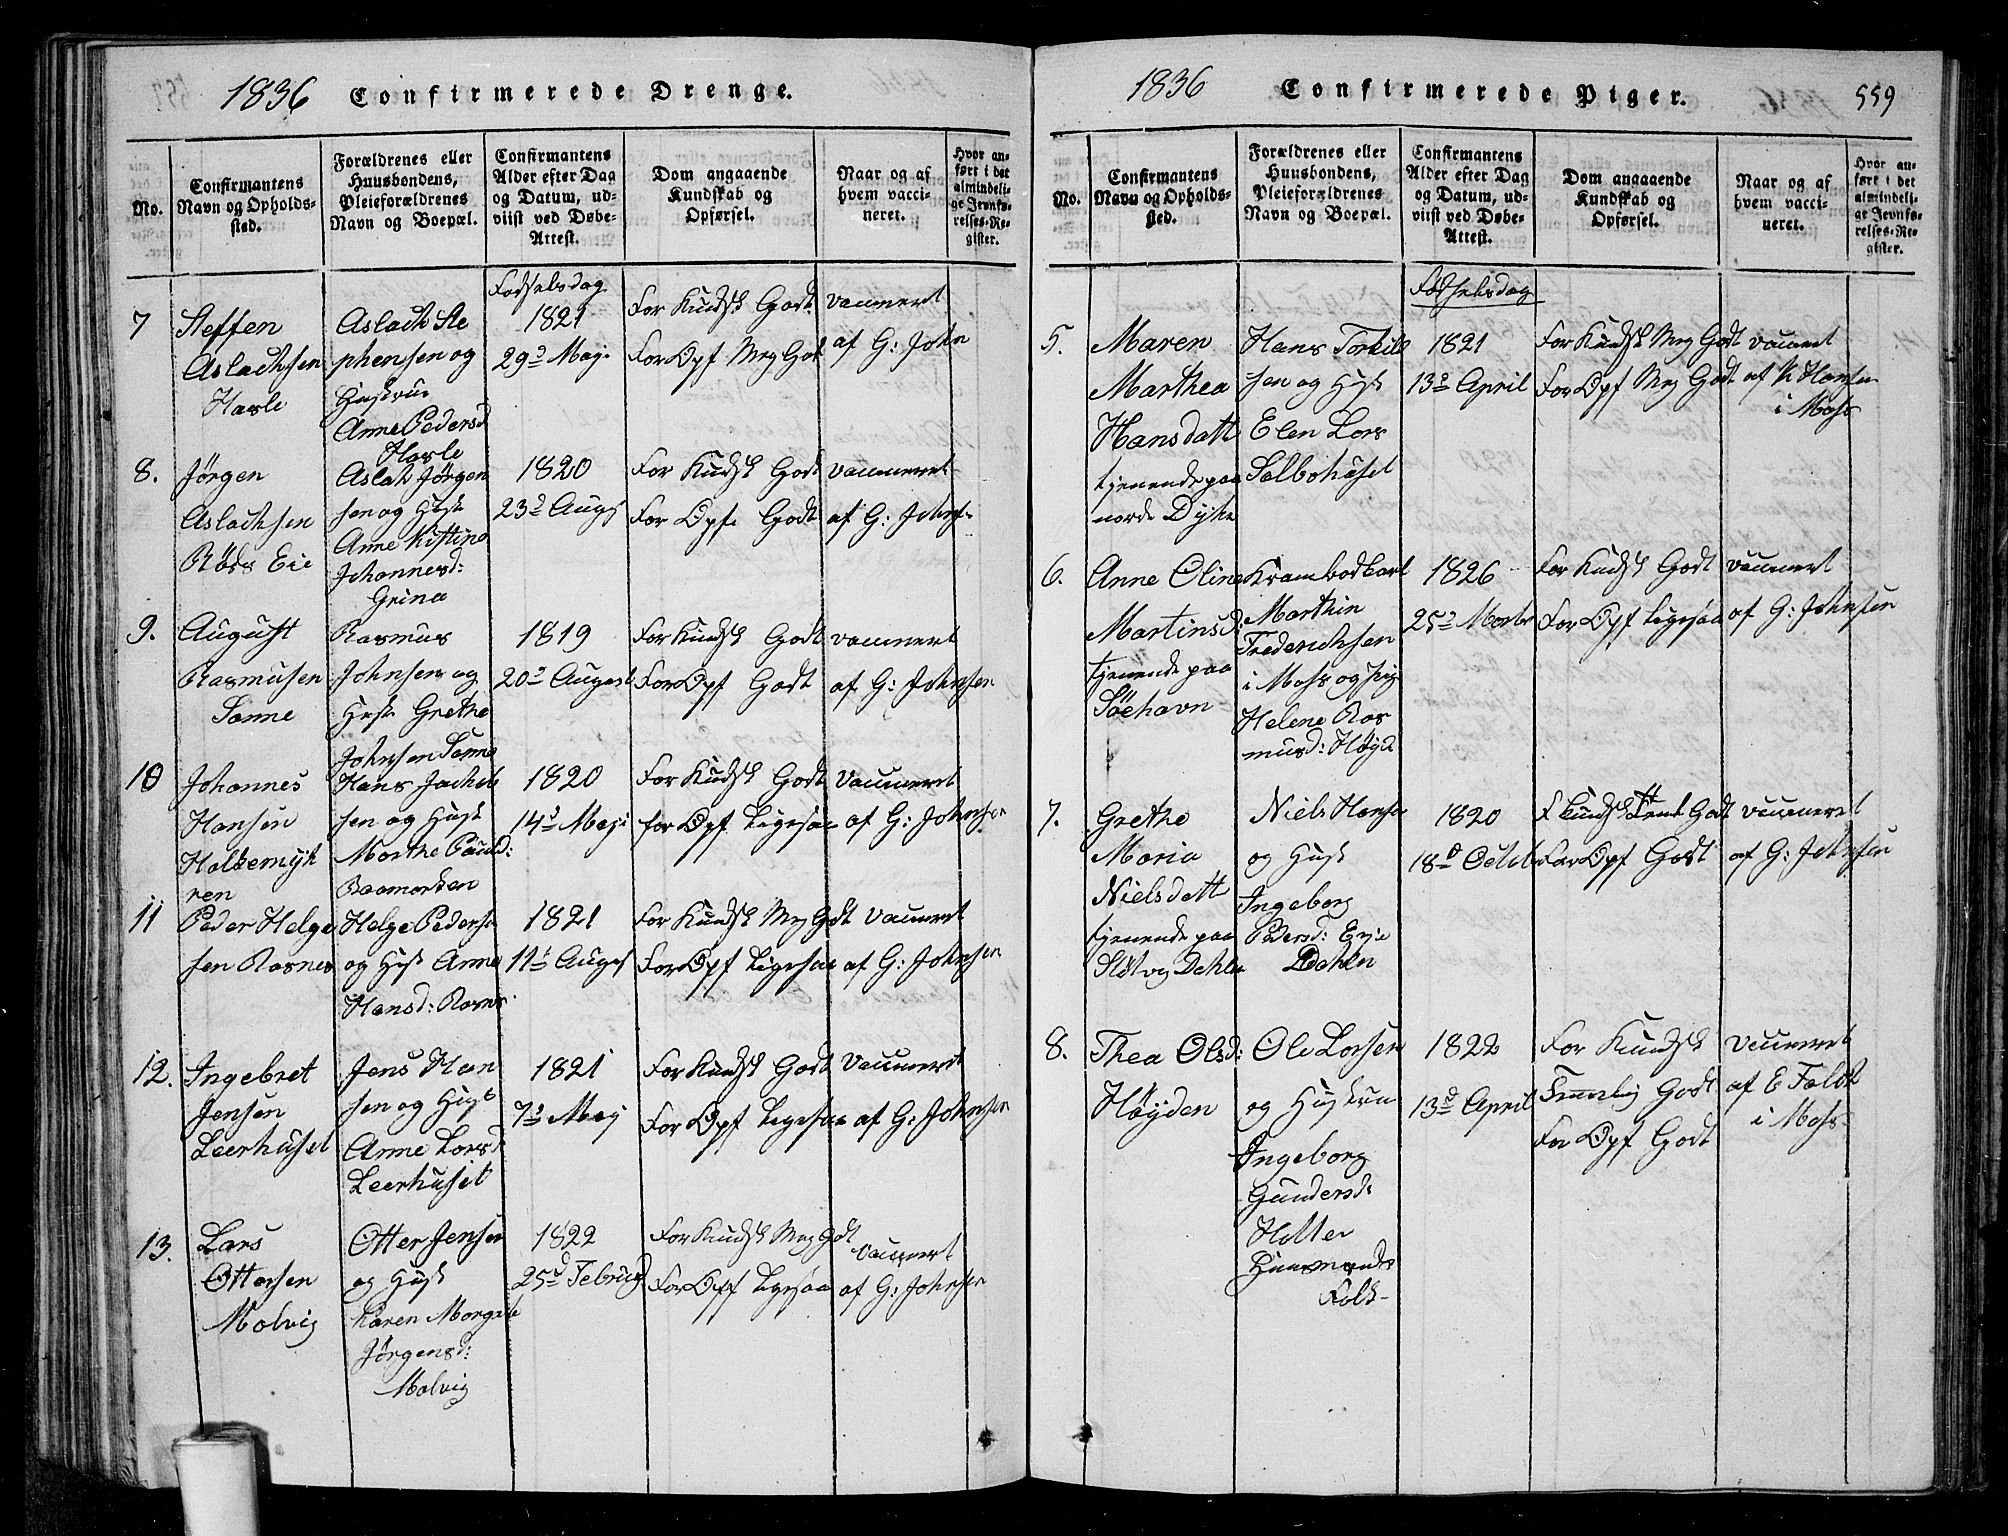 1836 Confirmerede Drenge.
No.
Confirmantens
Navn og Opholds-
sted.
Forældrenes eller
Huusbondens,
Pleieforældrenes
Navn og Boepæl.
Confirmantens
Alder efter Dag
og Datum, ud-
viist ved Døbe-
Attest.
Dom angaaende
Kundskab og
Opførsel.
Naar og af
hvem vacci-
neret.
Hvor an-
ført i det
almindeli-
ge Jevnfø-
relses-Re-
gister.
Fødselsdag
7
Steffen
Aslachsen
Harle
Aslach Ste
phensen og
Hustrue
Anne Pedersd
Harle
1821
29d Maji
For Kundsk Godt
For Opf Meg Godt
vacineret
af G: John
8.
Jørgen
Aslachsen
Røds Eie
Aslak Jørgen
sen og Hust
Anne Kistine
Johannesd:
Grina
1820
23d Augs
For Kundsk Godt
For Opf: Godt
vacineret
af G: Johns-
9.
August
Rasmusen
Sonne
Rasmus
Johnsen og
Hust Grethe
Johnsen Sonne
1819
20d August
For Kundsk Godt
For Opf Godt
vacinert
af G: Johnsen
10
Johannes
Hansen
Holkemyh
ren
Hans Jachob
sen og Hust
Marthe Pauld:
Raamorken
1820
14d Maji
For Kundsk Godt
for Opf Ligesaa
vacineret
af G: Johnsen
11
Peder Helge
sen Rosnes
Helge Pedersen
og Hust Anne
Hansd: Rosnes
1821
11d Augst
For Kundsk Meg Godt
For Opf Ligesaa
vacineret
af G: Johnsen
12.
Ingebret
Jensen
Leerhuset
Jens Han
sen og Hust
Anne Larsd
Leerhuset
1821
7d Maij
For Kundsk Godt
For Opf Ligesaa
vacineret
af G: Johnsen
13.
Lars
Ottersen
Molvig
Otter Jensen
og Hust
Karen Margrete
Jørgensd:
Molvig
1822
25d Februar
For Kundsk Meg Godt
For Opf Ligesaa
vacinert
af G: Johnsen
1836 Confirmerede Piger. 559
No.
Confirmantens
Navn og Opholds-
sted.
Forældrenes eller
Huusbondens,
Pleieforældrenes
Navn og Boepæl.
Confirmantens
Alder efter Dag
og Datum, ud-
viist ved Døbe-
Attest.
Dom angaaende
Kundskab og
Opførsel.
Naar og af
hvem vacci-
neret.
Hvor an-
ført i det
almindeli-
ge Jevnfø-
relses-Re-
gister.
Fødselsdag
5.
Maren
Marthea
Hansdatt
tjenende paa
nordr Dyhre
Hans Torkil
sen og Hust
Elen Lars
Salbohuset
1821
13d April
For Kundsk Meg Godt
For Opf Meg Godt
vacinert
af K Hansen
i Moss
6.
Anne Oline
Martinsd
tjenende paa
Søehavn
Krambodkarl
Marthin
Frederichsen
i Moss og Pig
Helene Ras
musd: Høyd
1826
25d Marts
For Kundsk Godt
For Opf Ligesaa
vacinert
af G: Johnsen
7.
Grethe
Maria
Nielsdatt
tjenende paa
Slotvig Dehln
Niels Hansen
og Hust
Ingeborg
Pedersd: Eeje
Dehln
1820
18d Octob
F Kundsk Temt Godt
For Opf Godt
vacineret
af G: Johnsen
8.
Thea Olsd:
Høyden
Ole Larsen
og Hustrue
Ingeborg
Gundersd:
Holter
Huusmands
Folk-
1822
13d April
For Kundsk
Temmelig Godt
For Opf Godt
vacineret
af E Falck
i Moss-